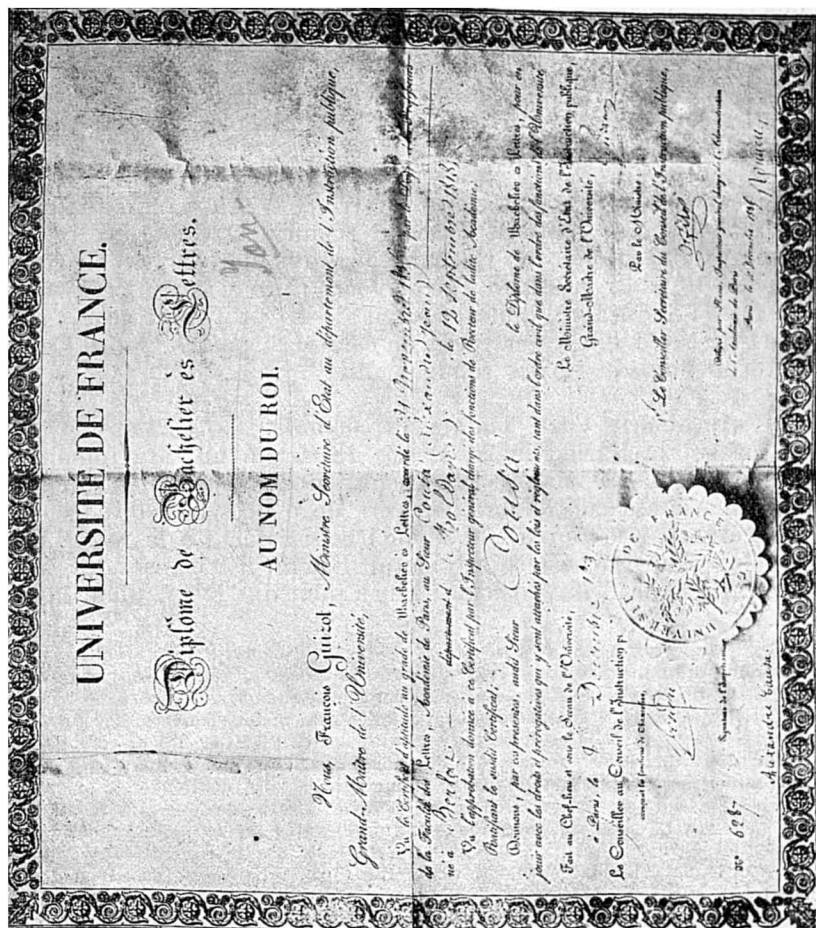 UNIVERSITÉ DE FRANCE.
Diplôme de Bachelier ès Lettres.
AU NOM DU ROI.
Nous, François Guizot, Ministre Secrétaire d'État au département de l'Instruction publique,
Grand-Maître de l'Université,
Vu le Certificat d'aptitude au grade de Bachelier ès Lettres, accordé le
de la Faculté des Lettres, Académie de Paris, au Sieur Couza (Alexandre Jean)
né à Berlad département d Moldavie le 12 Septembre
Vu l'approbation donnée à ce Certificat par l'Inspecteur général chargé des fonctions de Recteur de ladite Académie;
Ratifiant le susdit Certificat;
Donnons, par ces présentes, audit Sieur Cousa le Diplôme de Bachelier ès Lettres, pour en
jouir avec les droits et prérogatives qui y sont attachés par les lois et réglemens, tant dans l'ordre civil que dans l'ordre des fonctions de l'Université.
Fait au Chef-lieu et sous le Sceau de l'Université,
à Paris, le Décembre
Le Ministre Secrétaire d'État de l'Instruction publique,
Grand-Maître de l'Université,
Guizot
Le Conseiller au Conseil de l'Instruction p.
exerçant les fonctions de Chancelier,
Par le Ministre:
Le Conseiller Secrétaire du Conseil de l'Instruction publique,
UNIVERSITÉ DE FRANCE
Signature de l'Impétrant
Délivré par Nous, Inspecteur général chargé de l'Administration
de l'Académie de Paris
Paris, le Décembre
N° 6287
Alexandre Couza